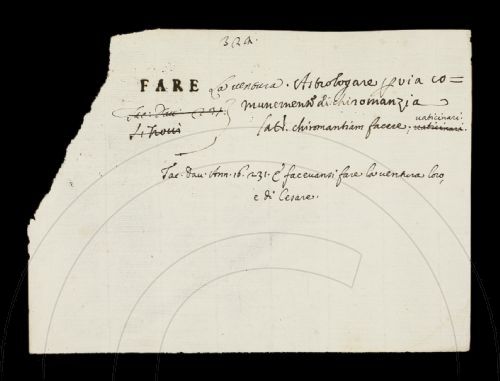 324.
FARE La ventura. Astrologare per via co=
munemente di chiromanzia
Lat. chiromantiam facere, vaticinari.
Tac. Dav. Ann. 16. 231. E facevansi fare la ventura loro,
e di Cesare.